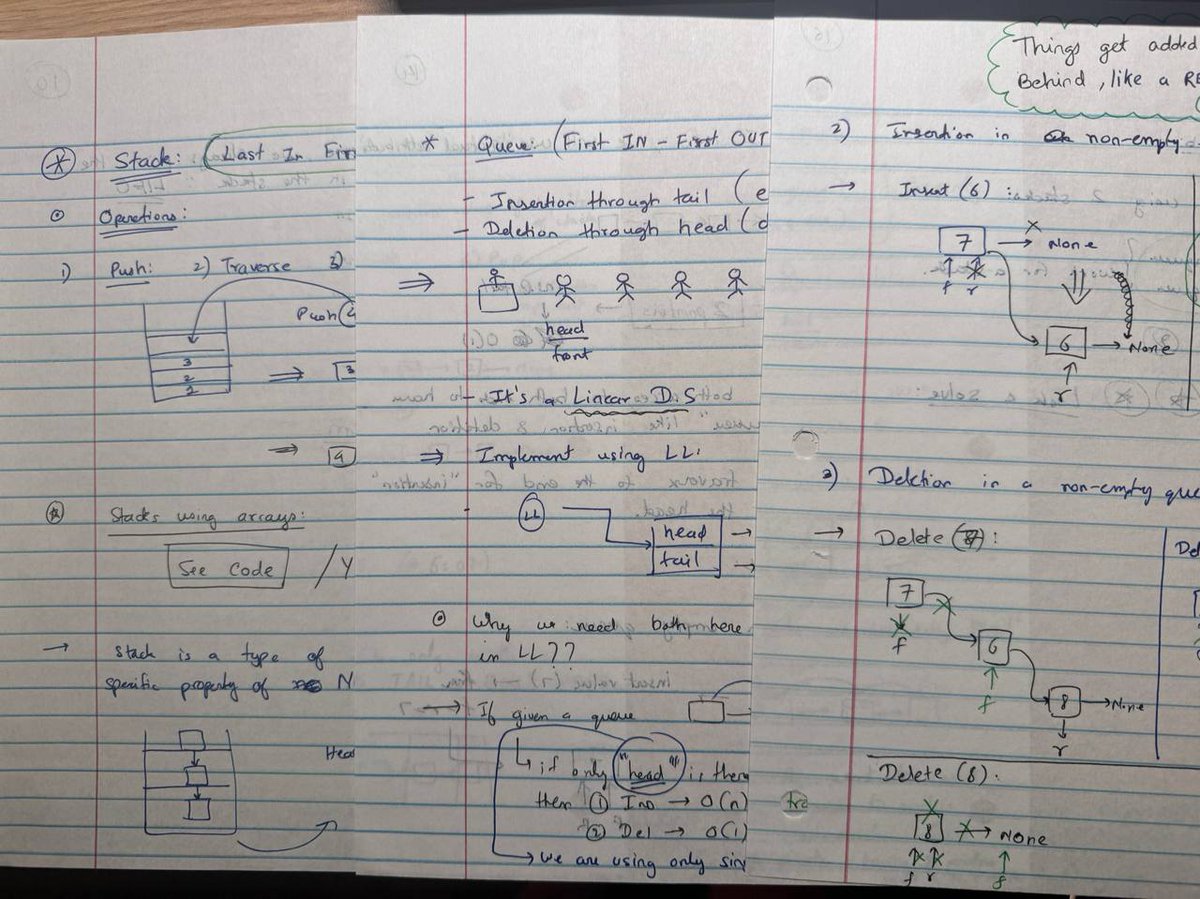 * Stack: (Last In Fir
Operations:
1) Push: 2) Traverse 3)
Push(4
3
2
⇒ 3
⇒
Stacks using arrays:
See Code / Y
→ Stack is a type of
specific property of N
Hea
* Queue: (First IN - First OUT
- Insertion through tail (e
- Deletion through head (d
⇒
head
front
- It's a Linear D.S
⇒ Implement using LL:
LL
head →
tail →
Why we need both here
in LL??
→ If given a queue
if only "head" is there
then ① Ins → O(n)
② Del → O(1)
→ we are using only sin
Things get added
Behind, like a RE
2) Insertion in non-empty
→ Insert (6) :
7 → None
f r
6 → None
r
3) Deletion in a non-empty que
→ Delete (7) :
De
7
f
6
f
8 → None
r
Delete (8).
8 → None
f r f